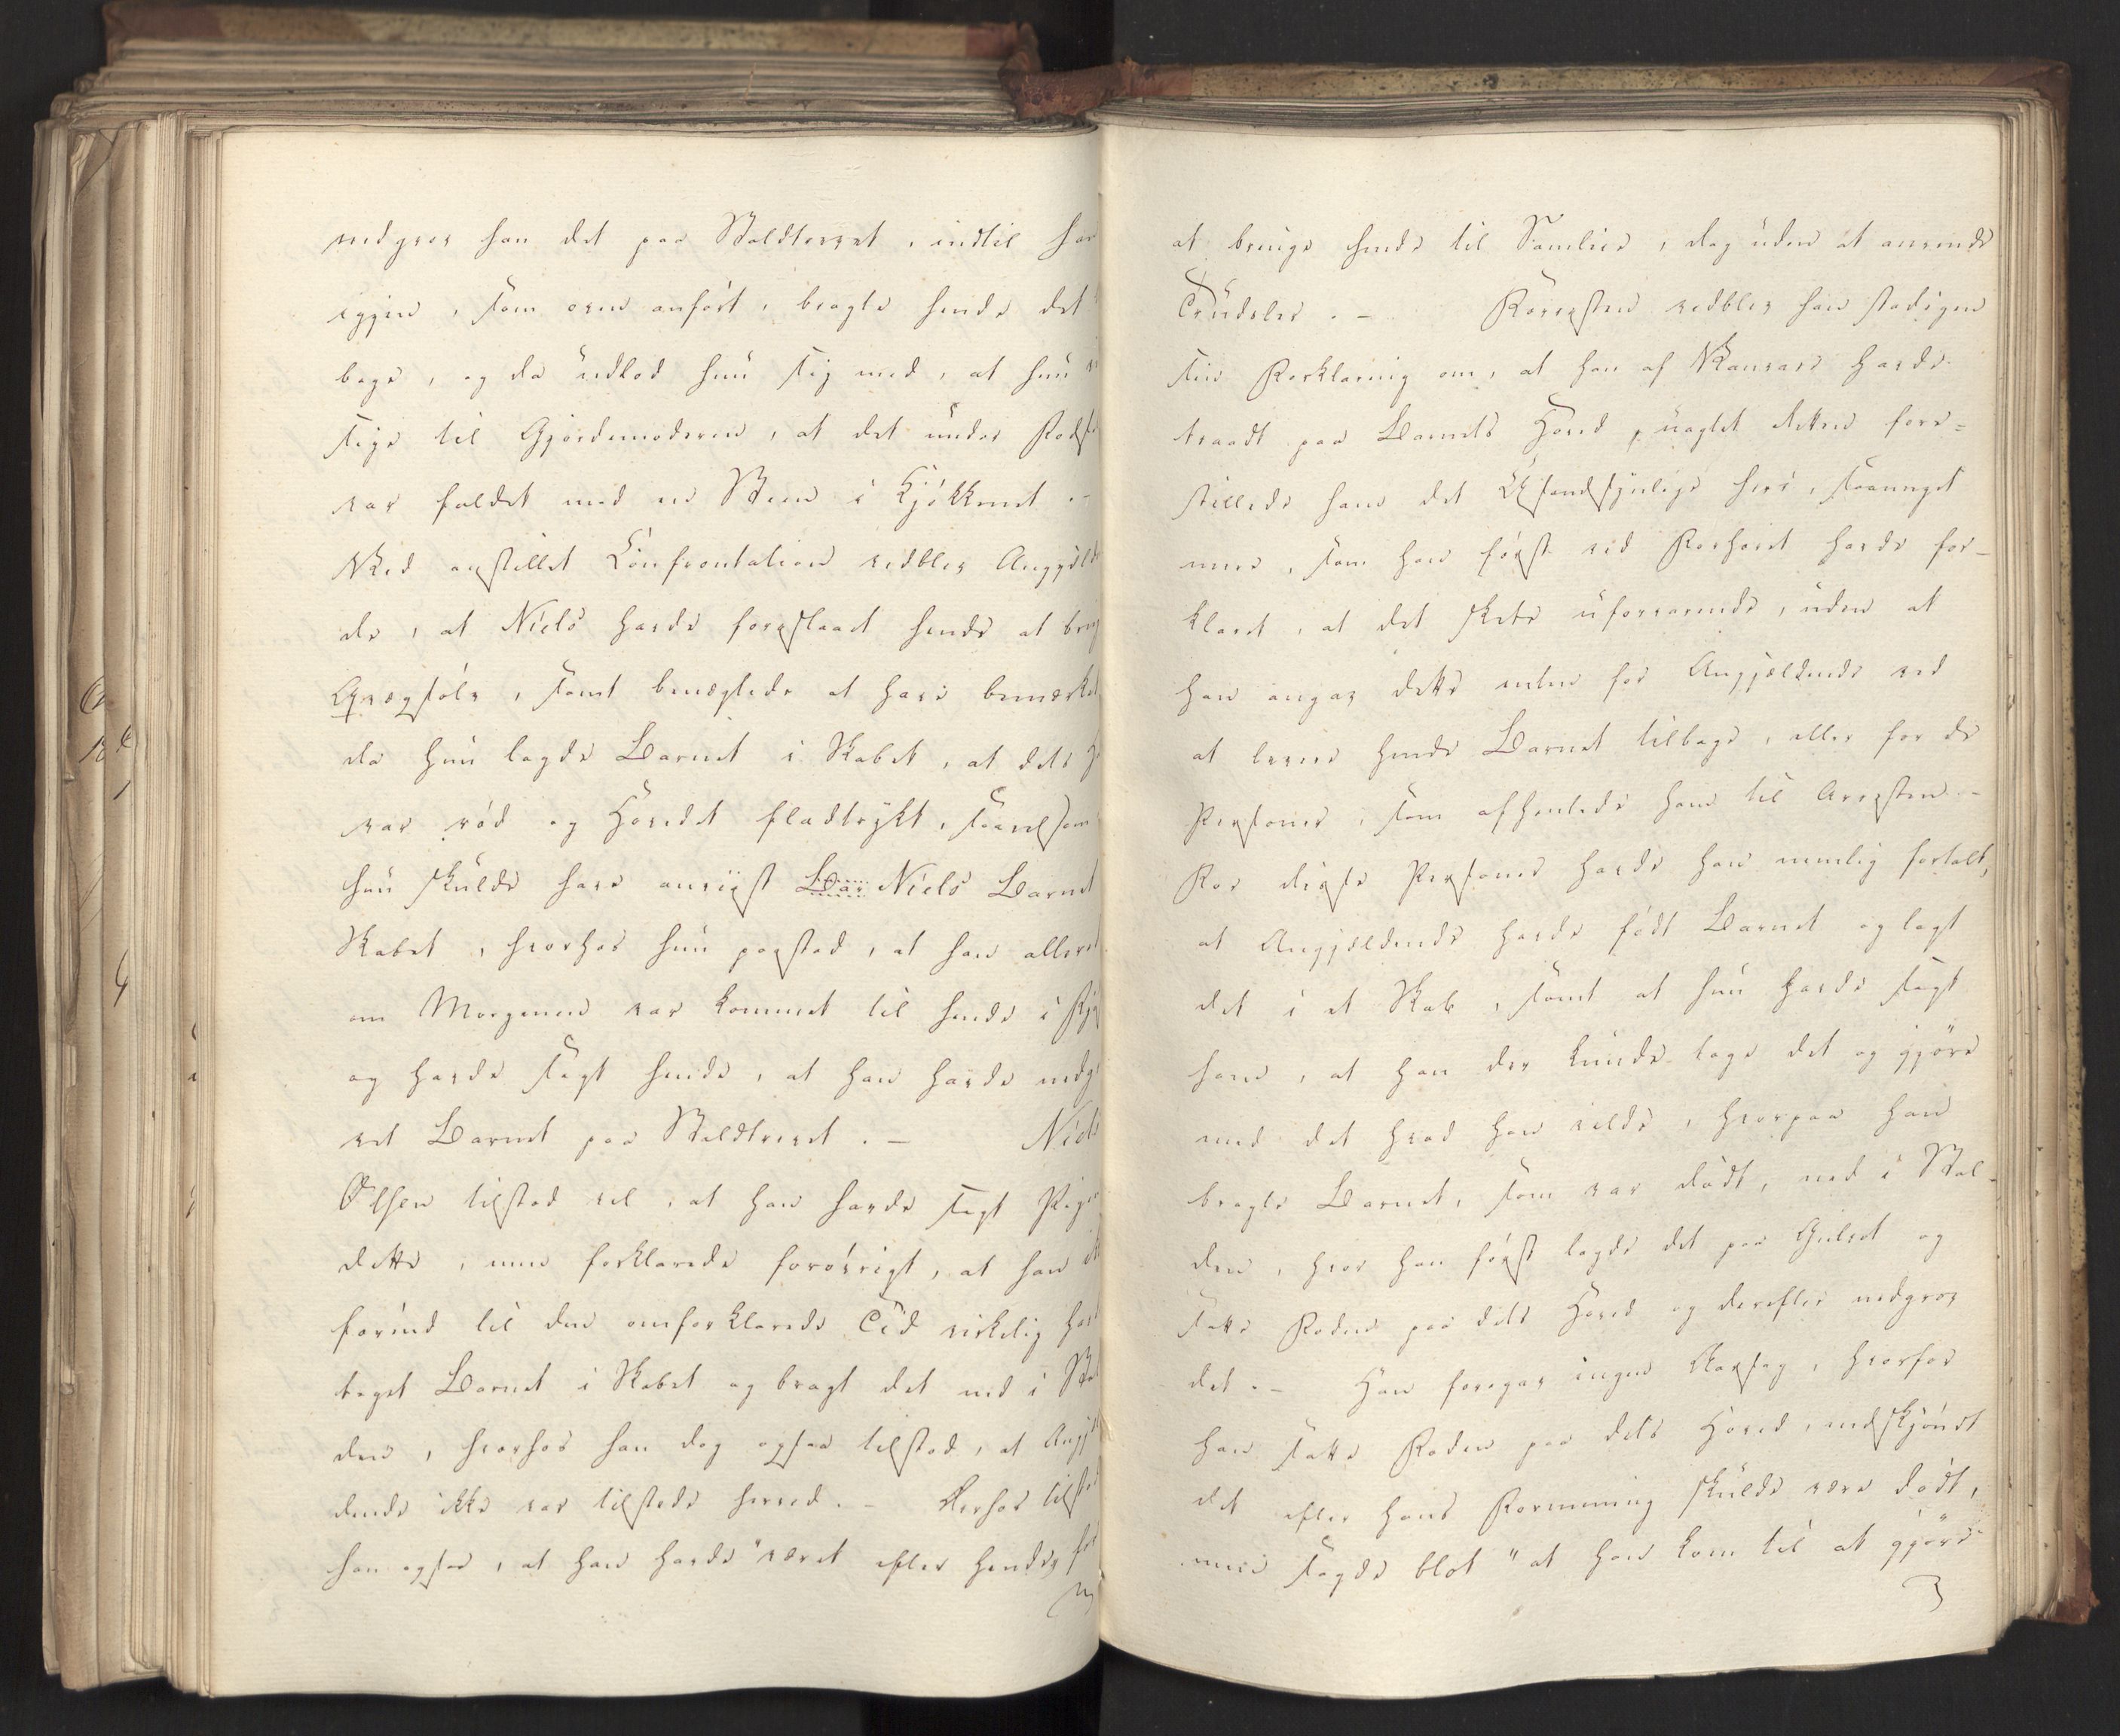 nedgrov han det paa Staldtorvet, indtil han
igjen, som oven anført, bragte hende det
bage, og da udlod hun sig med, at hun
sige til Gjordemoderen, at det under Fods
var faldet mod en Steen i Kjøkkenet. -
Ved anstillet Confrontation vedblev Angjæl
de, at Niels havde foreslaaet hende at brug
Qvægsølv, samt benægtede at have bemærket
da hun lagde Barnet i Skabet, at dets
var rød og Hovedet fladtrykt, saavelsom
hun skulde have anviist Bar Niels Barnet
Skabet, hvorhos hun paastod, at han allered
om Morgenen var kommet til hende i
og havde sagt hende, at han havde nedg
vet Barnet paa Staldtorvet. - Niels
Olsen tilstod vel, at han havde sagt Pigen
dette, men forklarede forøvrigt, at han ik
førend til den omforklarede Tid virkelig hav
taget Barnet i Skabet og bragt det ned i Stal
den, hvorhos han dog ogsaa tilstod, at Angjæl
dende ikke var tilstede herved. - Derhos tilsto
han ogsaa, at han havde "været efter hende" for
at bringe hende til Samleie, dog uden at anvende
Trudsler. - Forresten vedblev han stadigen
sin Forklaring om, at han af Vanvare havde
traadt paa Barnets Hoved, uagtet Retten fore=
stillede ham det Usandsynlige heri, saameget
mere, som han først ved Forhøret havde for-
klaret, at det skete uforvarende, uden at
han angav dette enten for Angjældende ved
at levere hende Barnet tilbage, eller for de
Personer, som afhentede ham til Arresten -
For disse Personer havde han nemlig fortalt,
at Angjældende havde født Barnet og lagt
det i et Skab, samt at hun havde sagt
ham, at han der kunde tage det og gjöre
med det hvad han vilde, hvorpaa han
bragte Barnet, som var dødt, ned i Stal-
den, hvor han først lagde det paa Gulvet og
satte Foden paa dets Hoved og derefter nedgrov
det. - Han foregav ingen Aarsag, hvorfor
han satte Foden paa dets Hoved, endskjøndt
det efter hans Formening skulde være dødt,
men sagde blot "at han kom til at gjöre